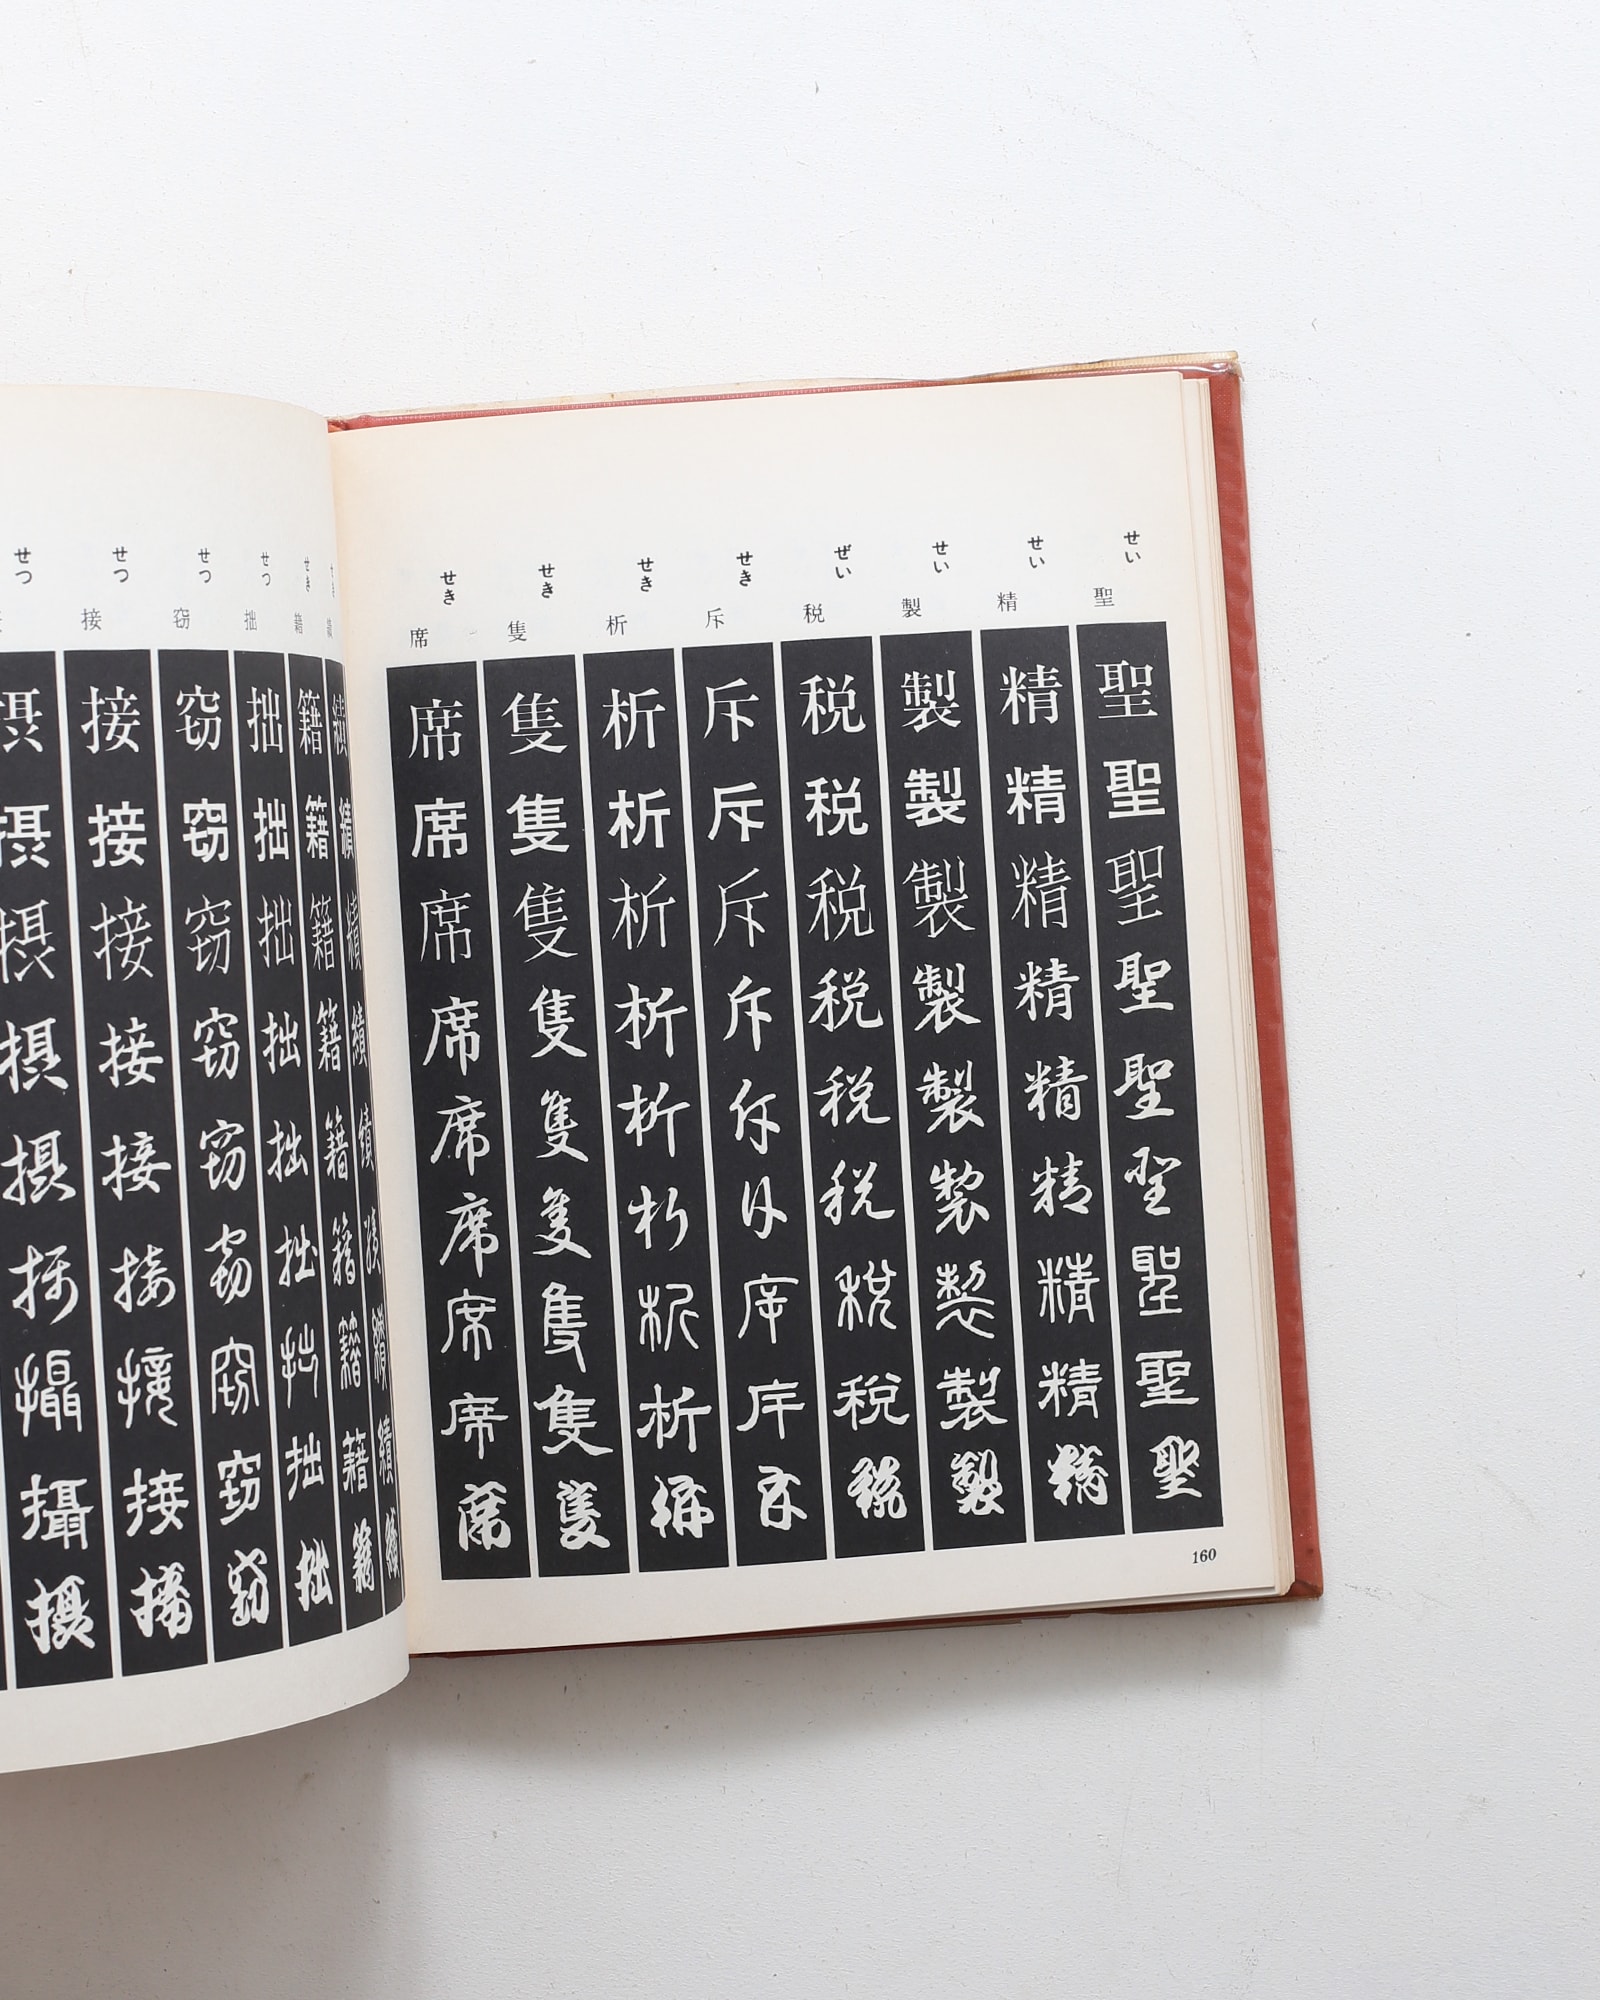 せい
聖
聖聖聖聖聖聖聖聖聖
せい
精
精精精精精精精精精
せい
製
製製製製製製製製製
ぜい
税
税税税税税税税税税
せき
斥
斥斥斥斥斥斥斥斥斥
せき
析
析析析析析析析析析
せき
隻
隻隻隻隻隻隻隻隻隻
せき
席
席席席席席席席席席
160
せき
績
績績績績績績績績績
せき
籍
籍籍籍籍籍籍籍籍籍
せつ
拙
拙拙拙拙拙拙拙拙拙
せつ
窃
窃窃窃窃窃窃窃窃窃
せつ
接
接接接接接接接接接
せつ
摂摂摂摂摂摂攝攝摂